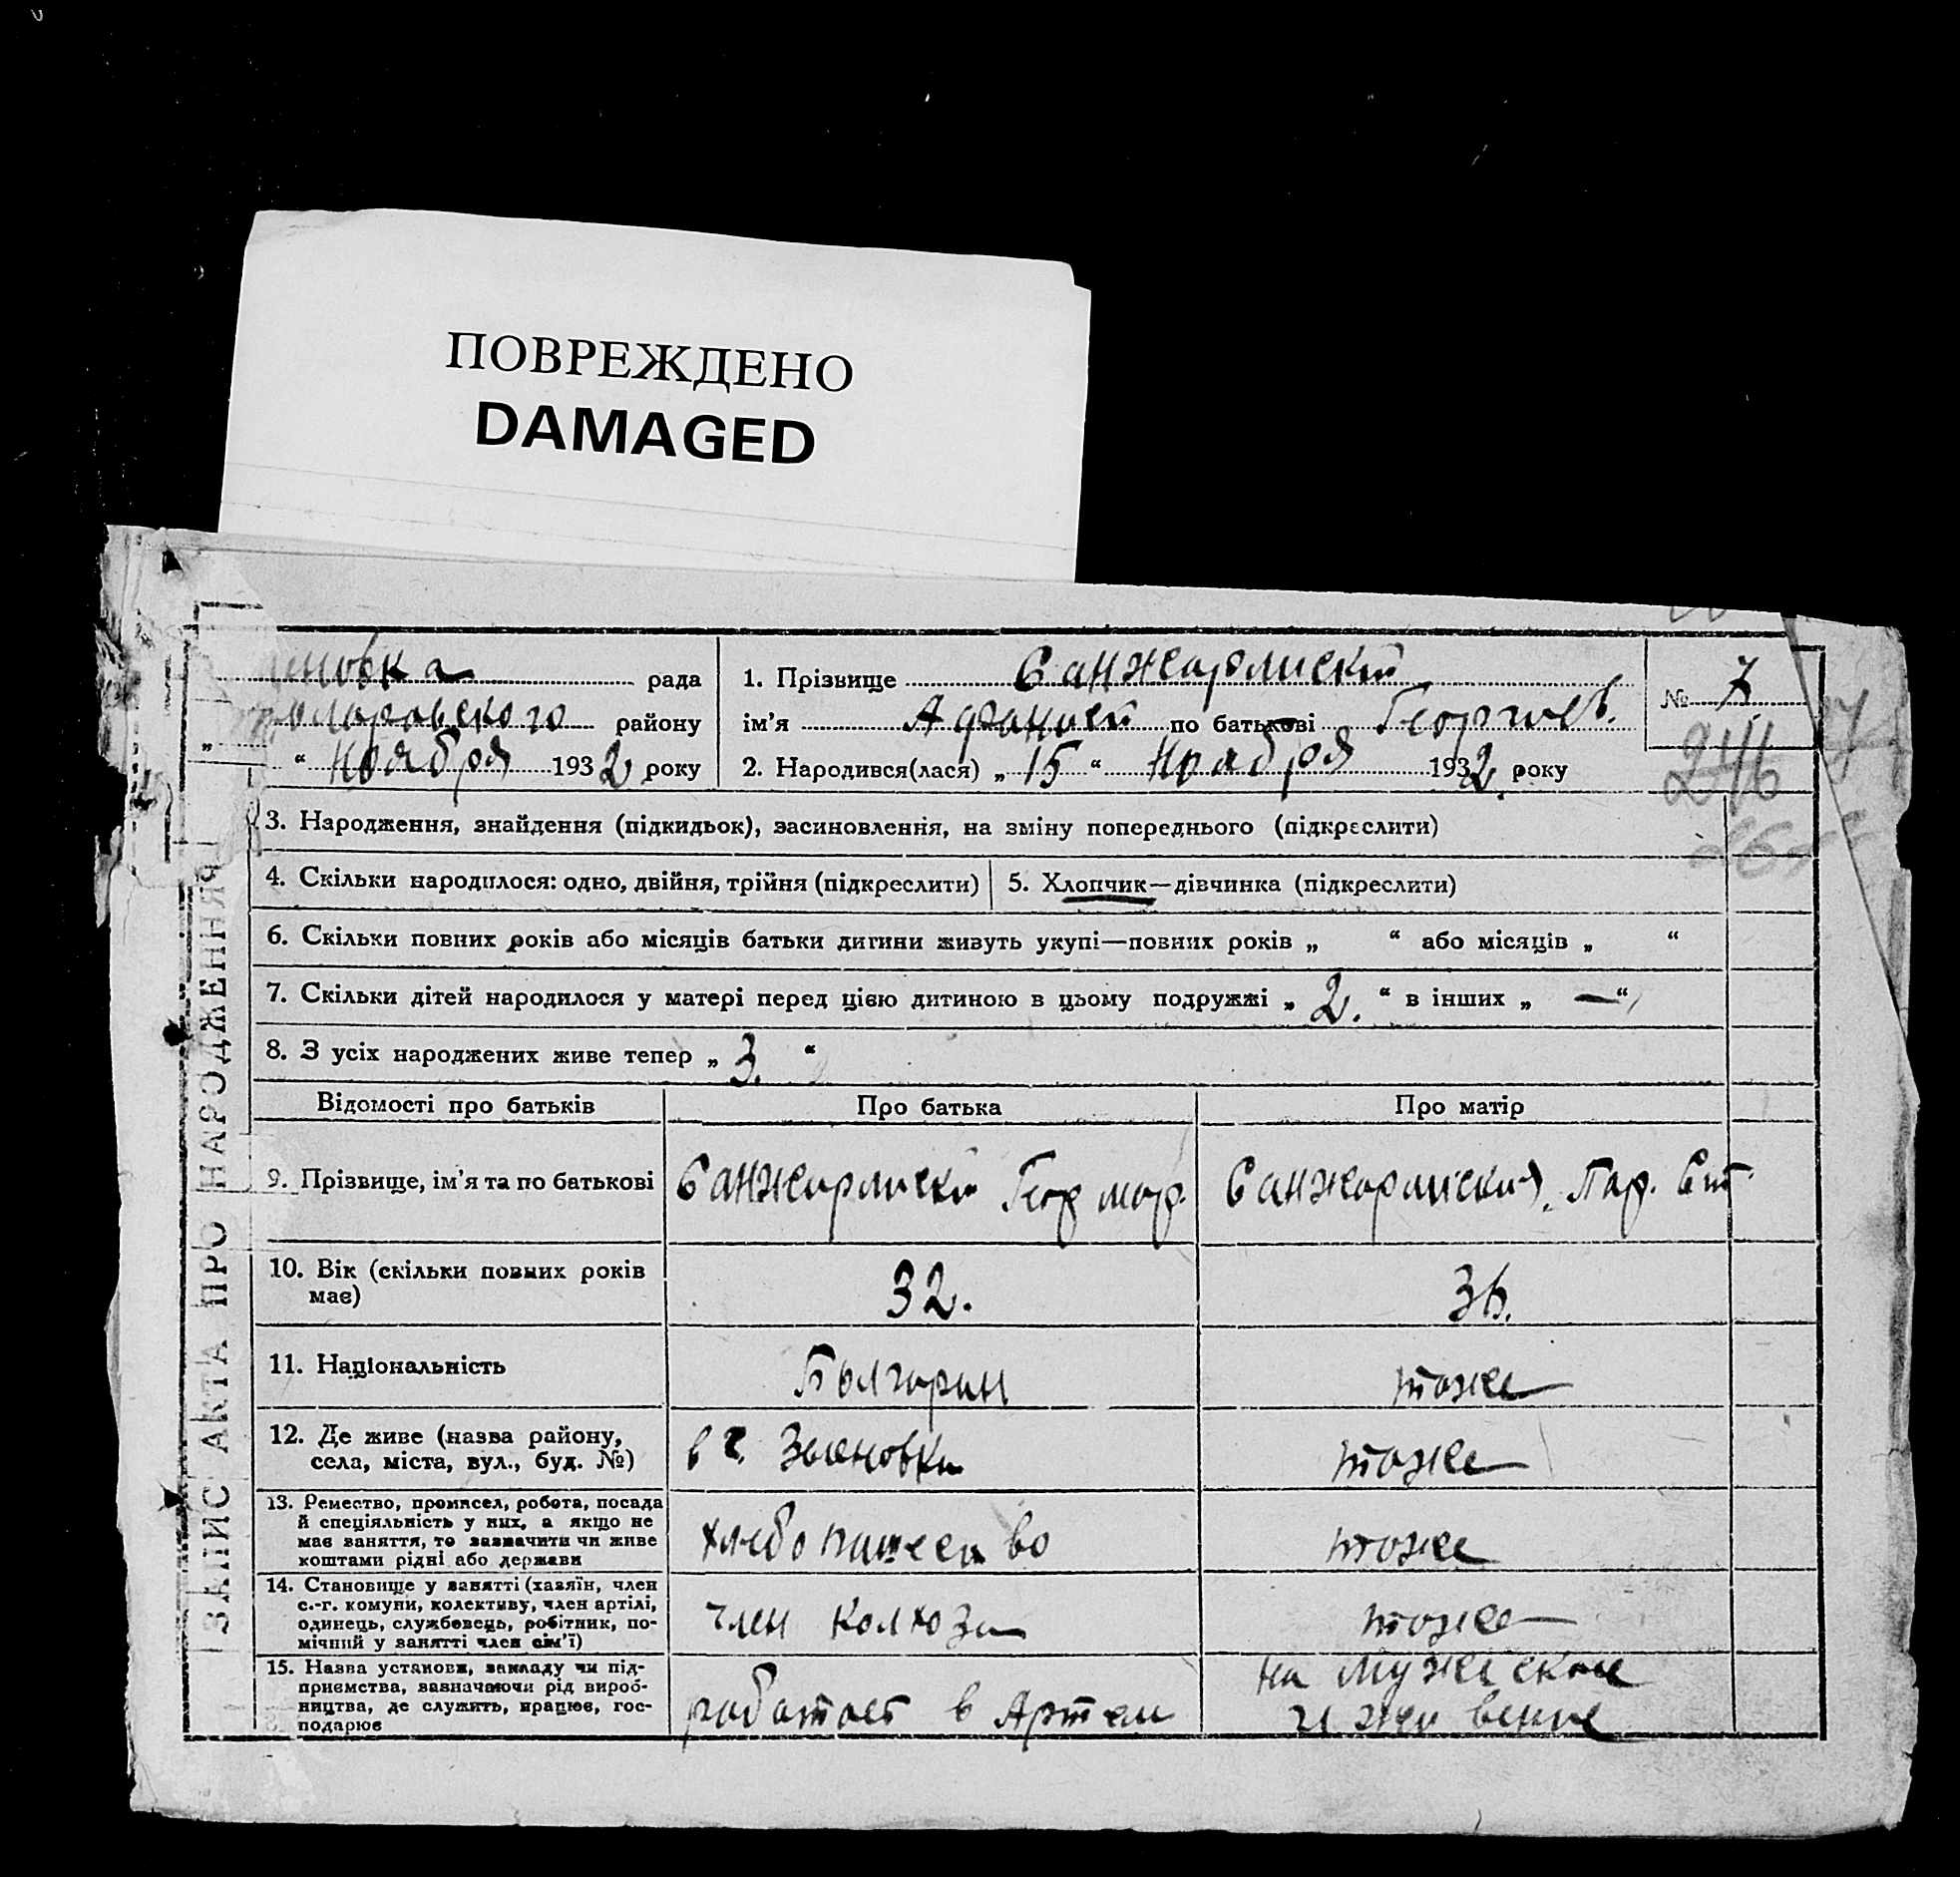 ПОВРЕЖДЕНО
DAMAGED
рада
района
районy
" ноября 1932 року
№ 7.
246
1. Прізвище Санжарлиский
ім'я Афанасий по батькові Георгиев.
2. Народився(лася) „ 15 “ Ноября 1932. року
3. Народження, знайдення (підкидьок), засиновлення, на зміну попереднього (підкреслити)
4. Скільки народилося: одно, двійня, трійня (підкреслити)
5. Хлопчик—дівчинка (підкреслити)
6. Скільки повних років або місяців батьки дитини живуть укупі—повних років „ “ або місяців „ “
7. Скільки дітей народилося у матері перед цією дитиною в цьому подружжі „ 2. “ в інших „ — “
8. З усіх народжених живе тепер „ 3. “
Відомості про батьків
Про батька
Про матір
9. Прізвище, ім'я та по батькові
Санжарлиски Геор мар.
Санжарлиския. Пар.
10. Вік (скільки повних років
має)
32.
36.
11. Національність
Българин
тоже
12. Де живе (назва району,
села, міста, вул., буд. №)
в с. Зеленовки
тоже
13. Ремество, промисел, робота, посада
й спеціяльність у них, а якщо не
має заняття, то зазначити чи живе
коштами рідні або держави
хлебопашество
тоже
14. Становище у занятті (хазяїн, член
с.-г. комуни, колективу, член артілі,
одинець, службовець, робітник, по-
мічний у занятті член сім'ї)
член колхоза
тоже
15. Назва установи, закладу чи під-
приємства, зазначаючи рід вироб-
ництва, де служить, працює, гос-
подарює
работает в Артели
на
ЗАПИС АКТА ПРО НАРОДЖЕННЯ